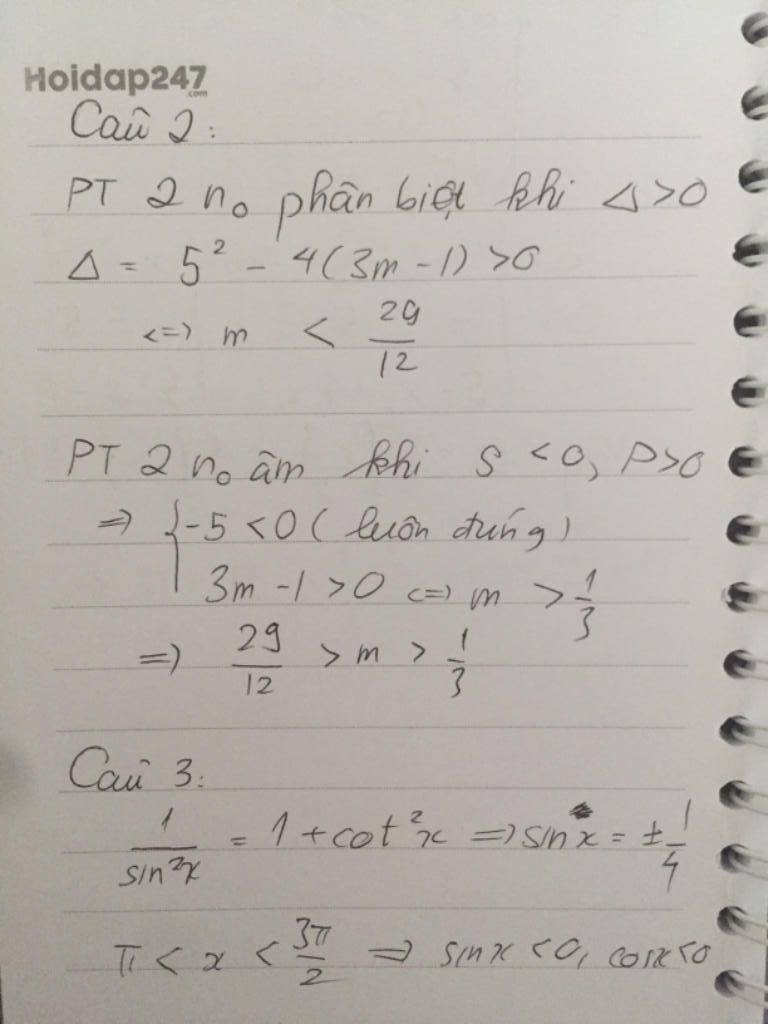 Hoidap247
.com
Câu 2:
PT 2 no phân biệt khi Δ > 0
Δ = 5² - 4(3m - 1) > 0
<=> m < 29/12
PT 2 no âm khi S < 0, P > 0
=> { -5 < 0 (luôn đúng)
3m - 1 > 0 <=> m > 1/3
=> 29/12 > m > 1/3
Câu 3:
1/sin²x = 1 + cot²x => sinx = ± 1/4
π < x < 3π/2 => sinx < 0, cosx < 0